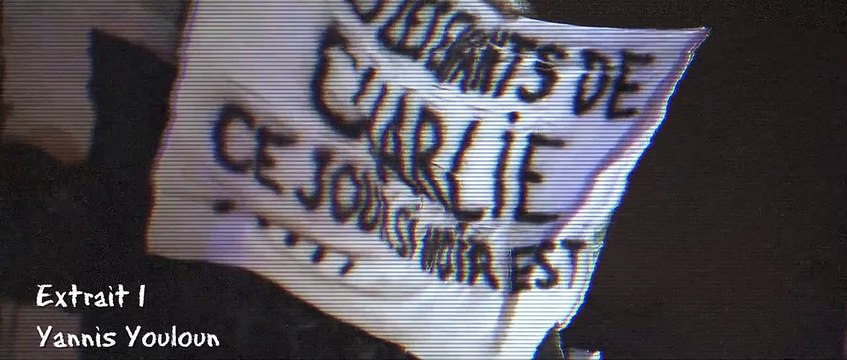 DE
CHARLIE
CE JOUR SI NOIR EST
Extrait 1
Yannis Youloun